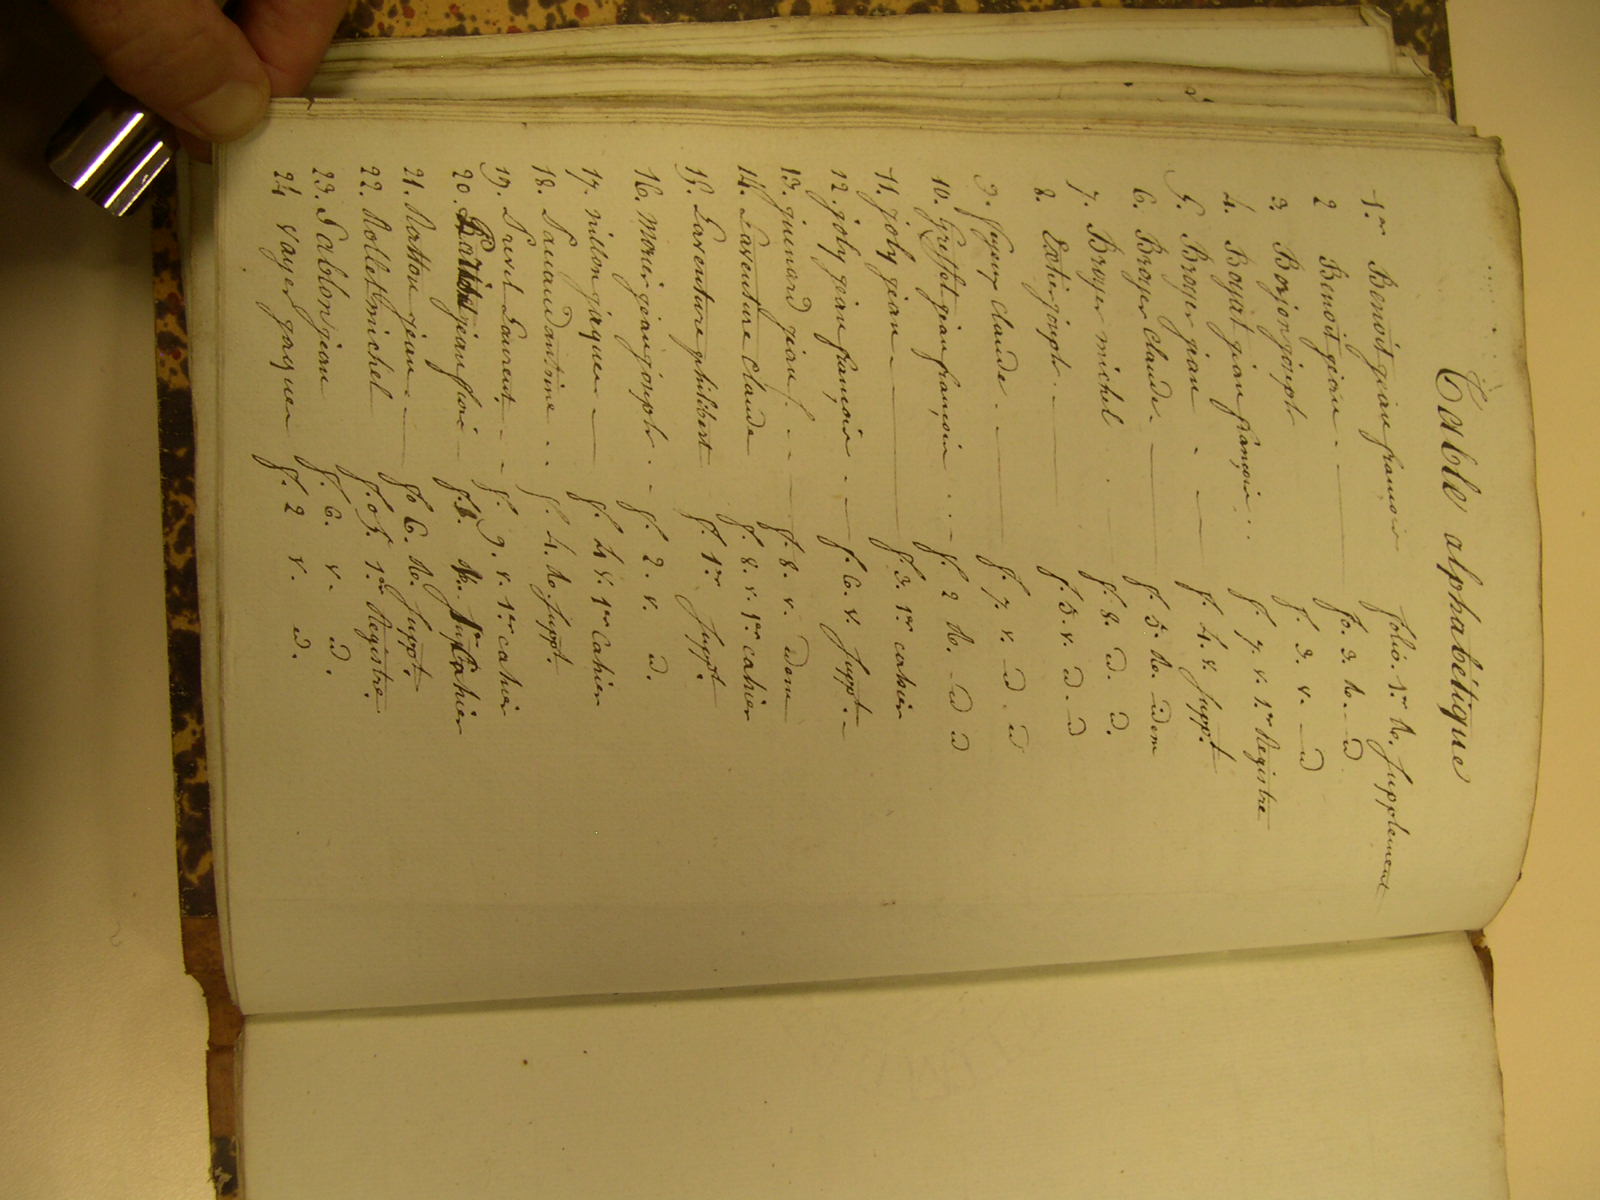 Table alphabétique
1.er Benoit jean francois folio. 1.er Ro. Supplement
2 Benoit jean. fo. 3. Ro. d
3. Borjon joseph f. 3. v. d
4. Boyat jean françois f. 7. v. 1.er Registre
5. Broyer jean f. 4. v. Suppt.
6. Broyer Claude. f. 5. Ro. idem
7. Broyer michel f. 8. d. d.
8. joseph. f. 5. v. d. d
9. Claude. f. 7. v. d. d
10. Greffet jean françois f. 2 Ro. d d
11. joly jean f. 3. 1er cahier
12. joly jean françois f. 6. v. Suppt.
13. guenard jean f. f. 8. v. idem
14. Laventure Claude f. 8. v. 1er cahier
15. Laventure philibert f. 1er Suppt.
16. Monier jean joseph. f. 2. v. d.
17. nillon jaques f. 4 v. 1er Cahier
18. antoine f. 4. Ro. Suppt.
19. Laurent f. 9. v. 1er cahier
20. jean f. 1er Cahier
21. Ratton jean fo 6. Ro. Suppt.
22. Rollet michel f. 1er Registre.
23. Sablon jean f. 6. v. d.
24 Vayer jaques f. 2 v. d.